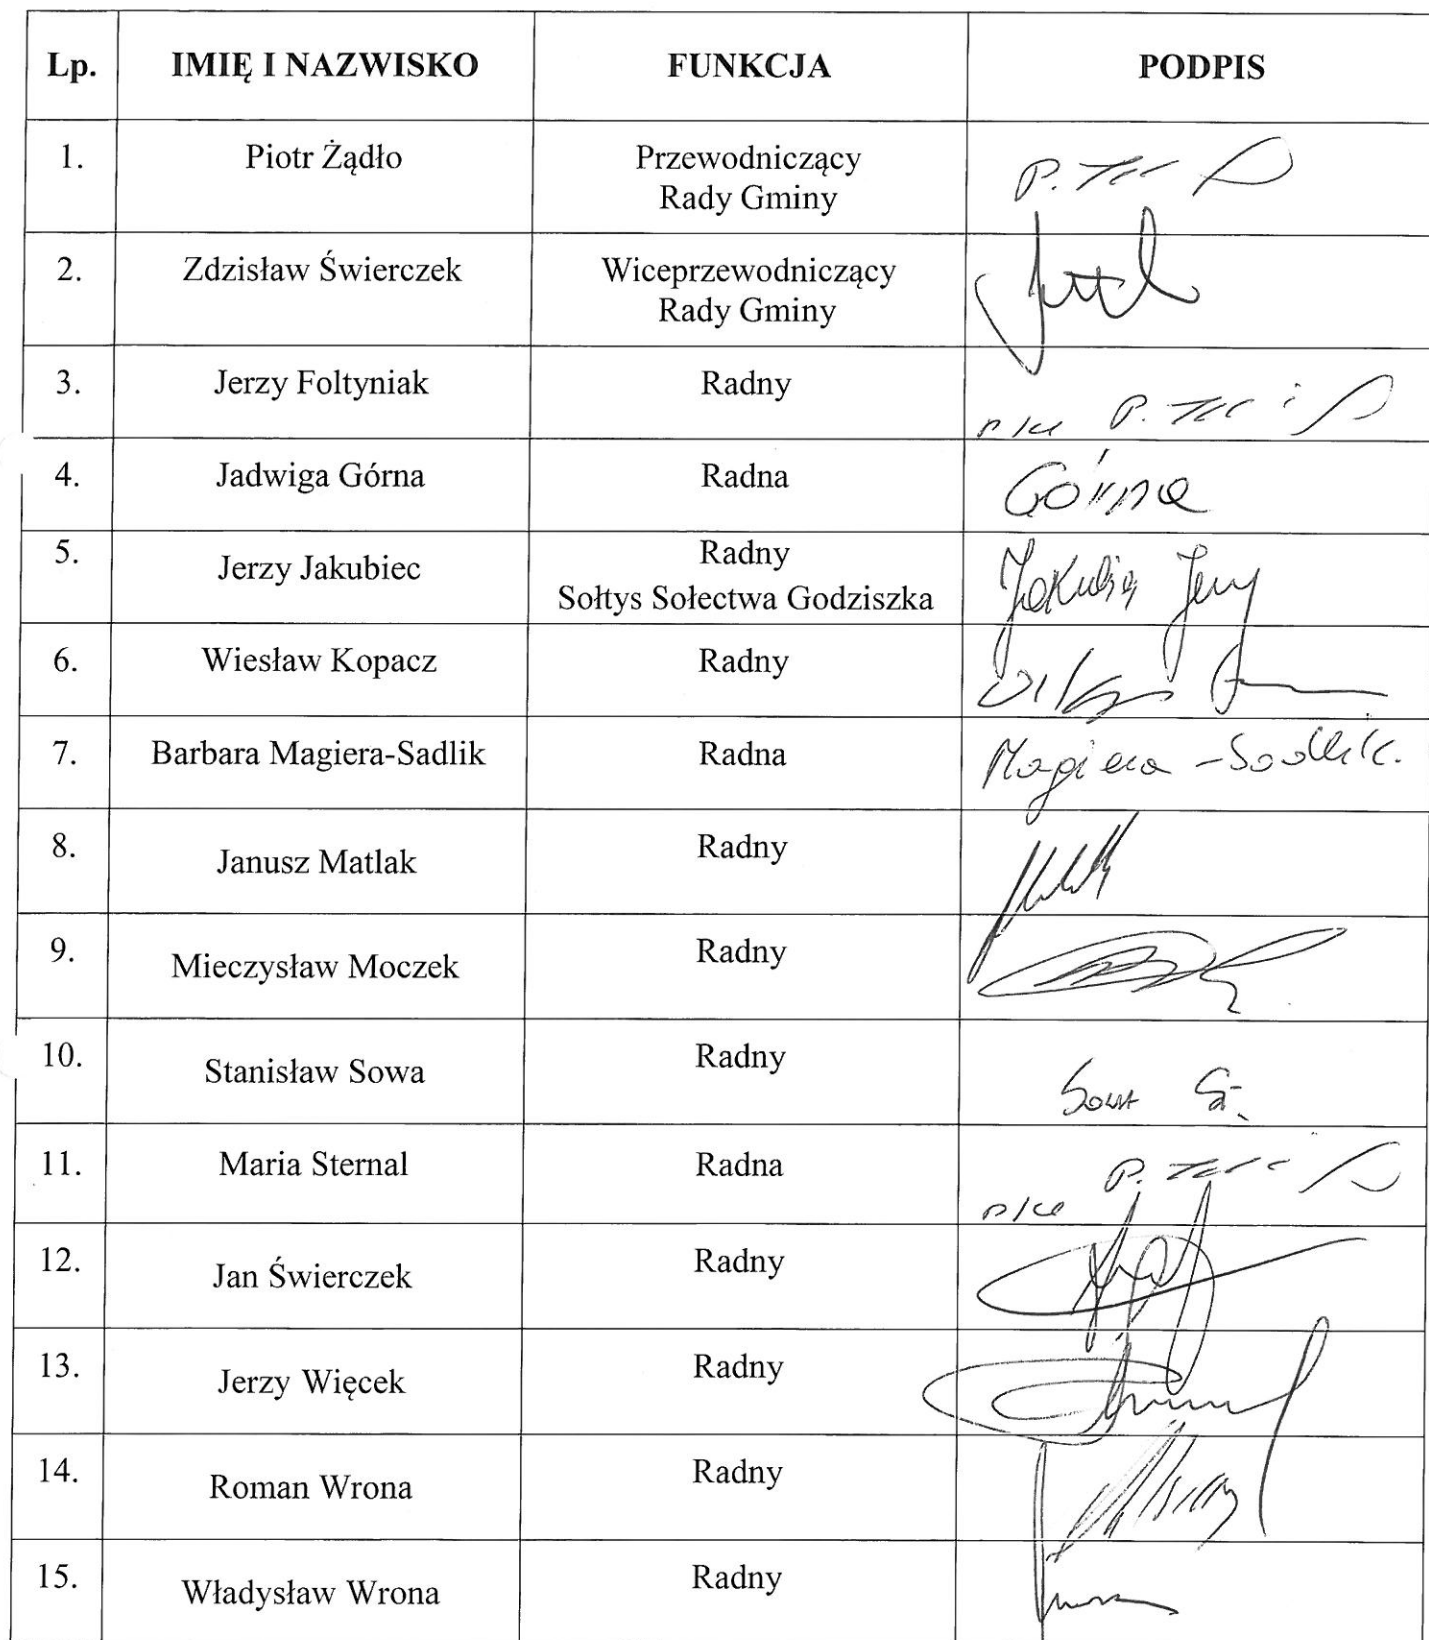 Lp. IMIĘ I NAZWISKO FUNKCJA PODPIS
1. Piotr Żądło Przewodniczący
Rady Gminy
2. Zdzisław Świerczek Wiceprzewodniczący
Rady Gminy
3. Jerzy Foltyniak Radny
4. Jadwiga Górna Radna Górna
5. Jerzy Jakubiec Radny Jakubiec Jerzy
Sołtys Sołectwa Godziszka
6. Wiesław Kopacz Radny
7. Barbara Magiera-Sadlik Radna Magiera-Sadlik.
8. Janusz Matlak Radny
9. Mieczysław Moczek Radny
10. Stanisław Sowa Radny Sowa St.
11. Maria Sternal Radna
12. Jan Świerczek Radny
13. Jerzy Więcek Radny
14. Roman Wrona Radny
15. Władysław Wrona Radny